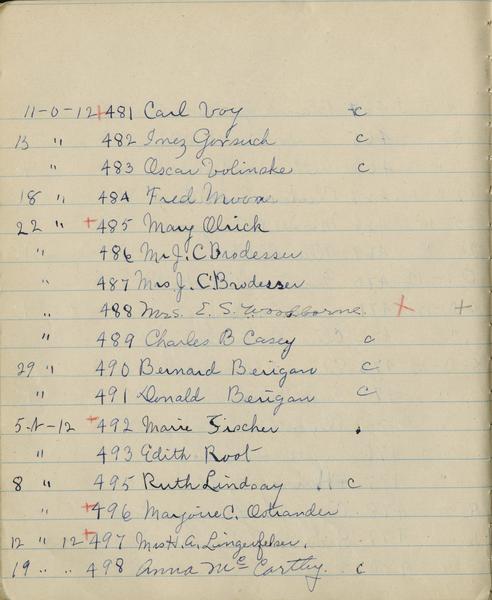 11-0-12 + 481 Carl Voy c
13 " 482 Inez Gorsuch c
" 483 Oscar Volinske c
18 " 484 Fred Moore
22 " + 485 Mary Olrick
" 486 Mr J. C Brodesser
" 487 Mrs. J. C. Brodesser
" 488 Mrs. E. S. x +
" 489 Charles B Casey c
29 " 490 Bernard Berigan c
" 491 Donald Berigan c
5-N-12 + 492 Marie Fischer .
" 493 Edith Root
8 " 495 Ruth Lindsay c
" + 496 Marjoire C. Ostrander
12 " 12 + 497 Mrs H. A. Lingerfelser.
19 " " 498 Anna Mc Carthy. c